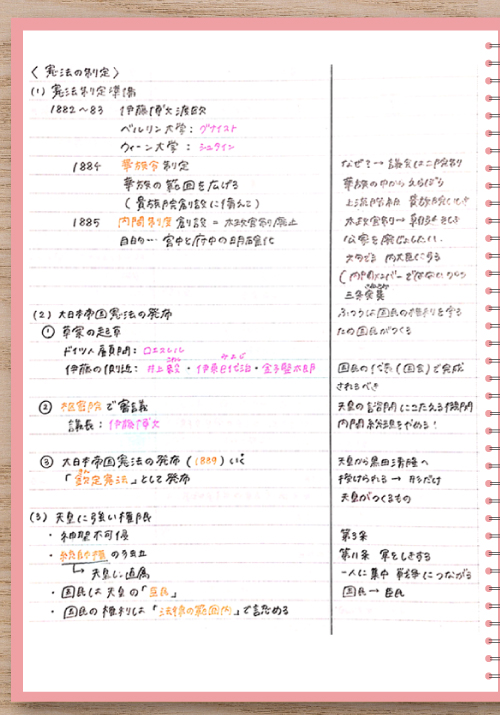 〈 憲法の制定 〉
(1) 憲法制定準備
1882〜83 伊藤博文渡欧
ベルリン大学: グナイスト
ウィーン大学: シュタイン
1884 華族令制定
華族の範囲を広げる
(貴族院創設に備えて)
1885 内閣制度創設 = 太政官制廃止
目的… 宮中と府中の明確化
(2) 大日本帝国憲法の発布
① 草案の起草
ドイツ人顧問: ロエスレル
伊藤の側近: 井上毅・伊東巳代治・金子堅太郎
② 枢密院で審議
議長: 伊藤博文
③ 大日本帝国憲法の発布 (1889)
「欽定憲法」として発布
(3) 天皇に強い権限
・神聖不可侵
・統帥権の独立
↳ 天皇に直属
・国民は天皇の「臣民」
・国民の権利は「法律の範囲内」で認める
なぜ?→ 議会は二院制
華族の中からえらばう
太政官制→
公家を廃止したい.
内大臣
三条実美
ふつうは国民の権利を守る
ための国民がつくる
国民の代表 (国会) で完成
されるべき
天皇の諮問にこたえる機関
内閣総理をやめる!
天皇から黒田清隆へ
授けられる → 形だけ
天皇がつくるもの
第3条
第11条 軍をしきする
一人に集中 戦争につながる
国民→ 臣民